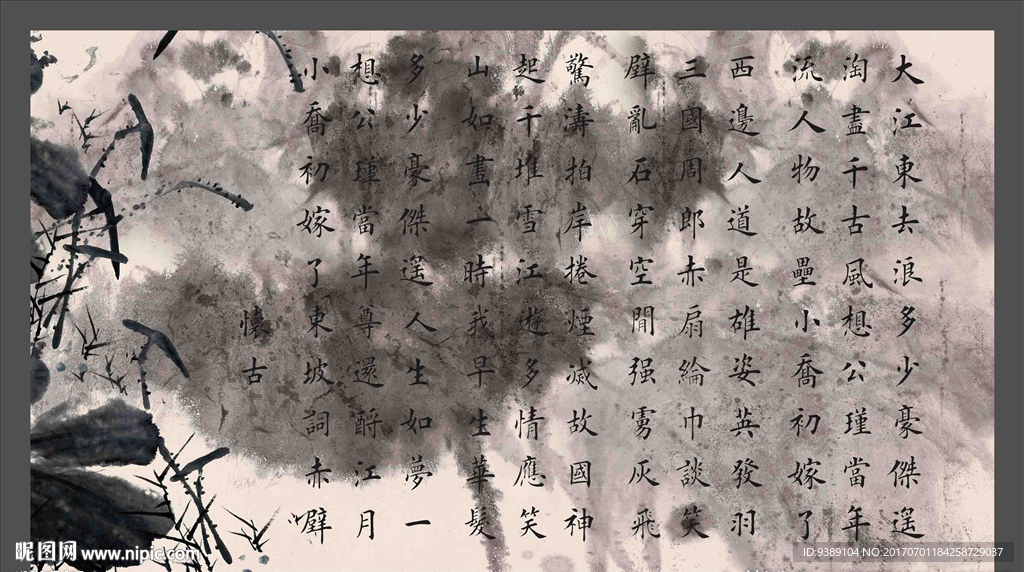 大江東去浪多少豪傑遥
淘盡千古風想公瑾當年
流人物故壘小喬初嫁了
西邊人道是雄姿英發羽
三國周郎赤扇綸巾談笑
壁亂石穿空閒强虜灰飛
驚濤拍岸捲煙滅故國神
起千堆雪江遊多情應笑
山如畫一時我早生華髮
多少豪傑遥人生如夢一
想公瑾當年尊還酹江月
小喬初嫁了東坡詞赤壁
懷古
昵图网 www.nipic.com
ID:9389104 NO:20170701184258729037